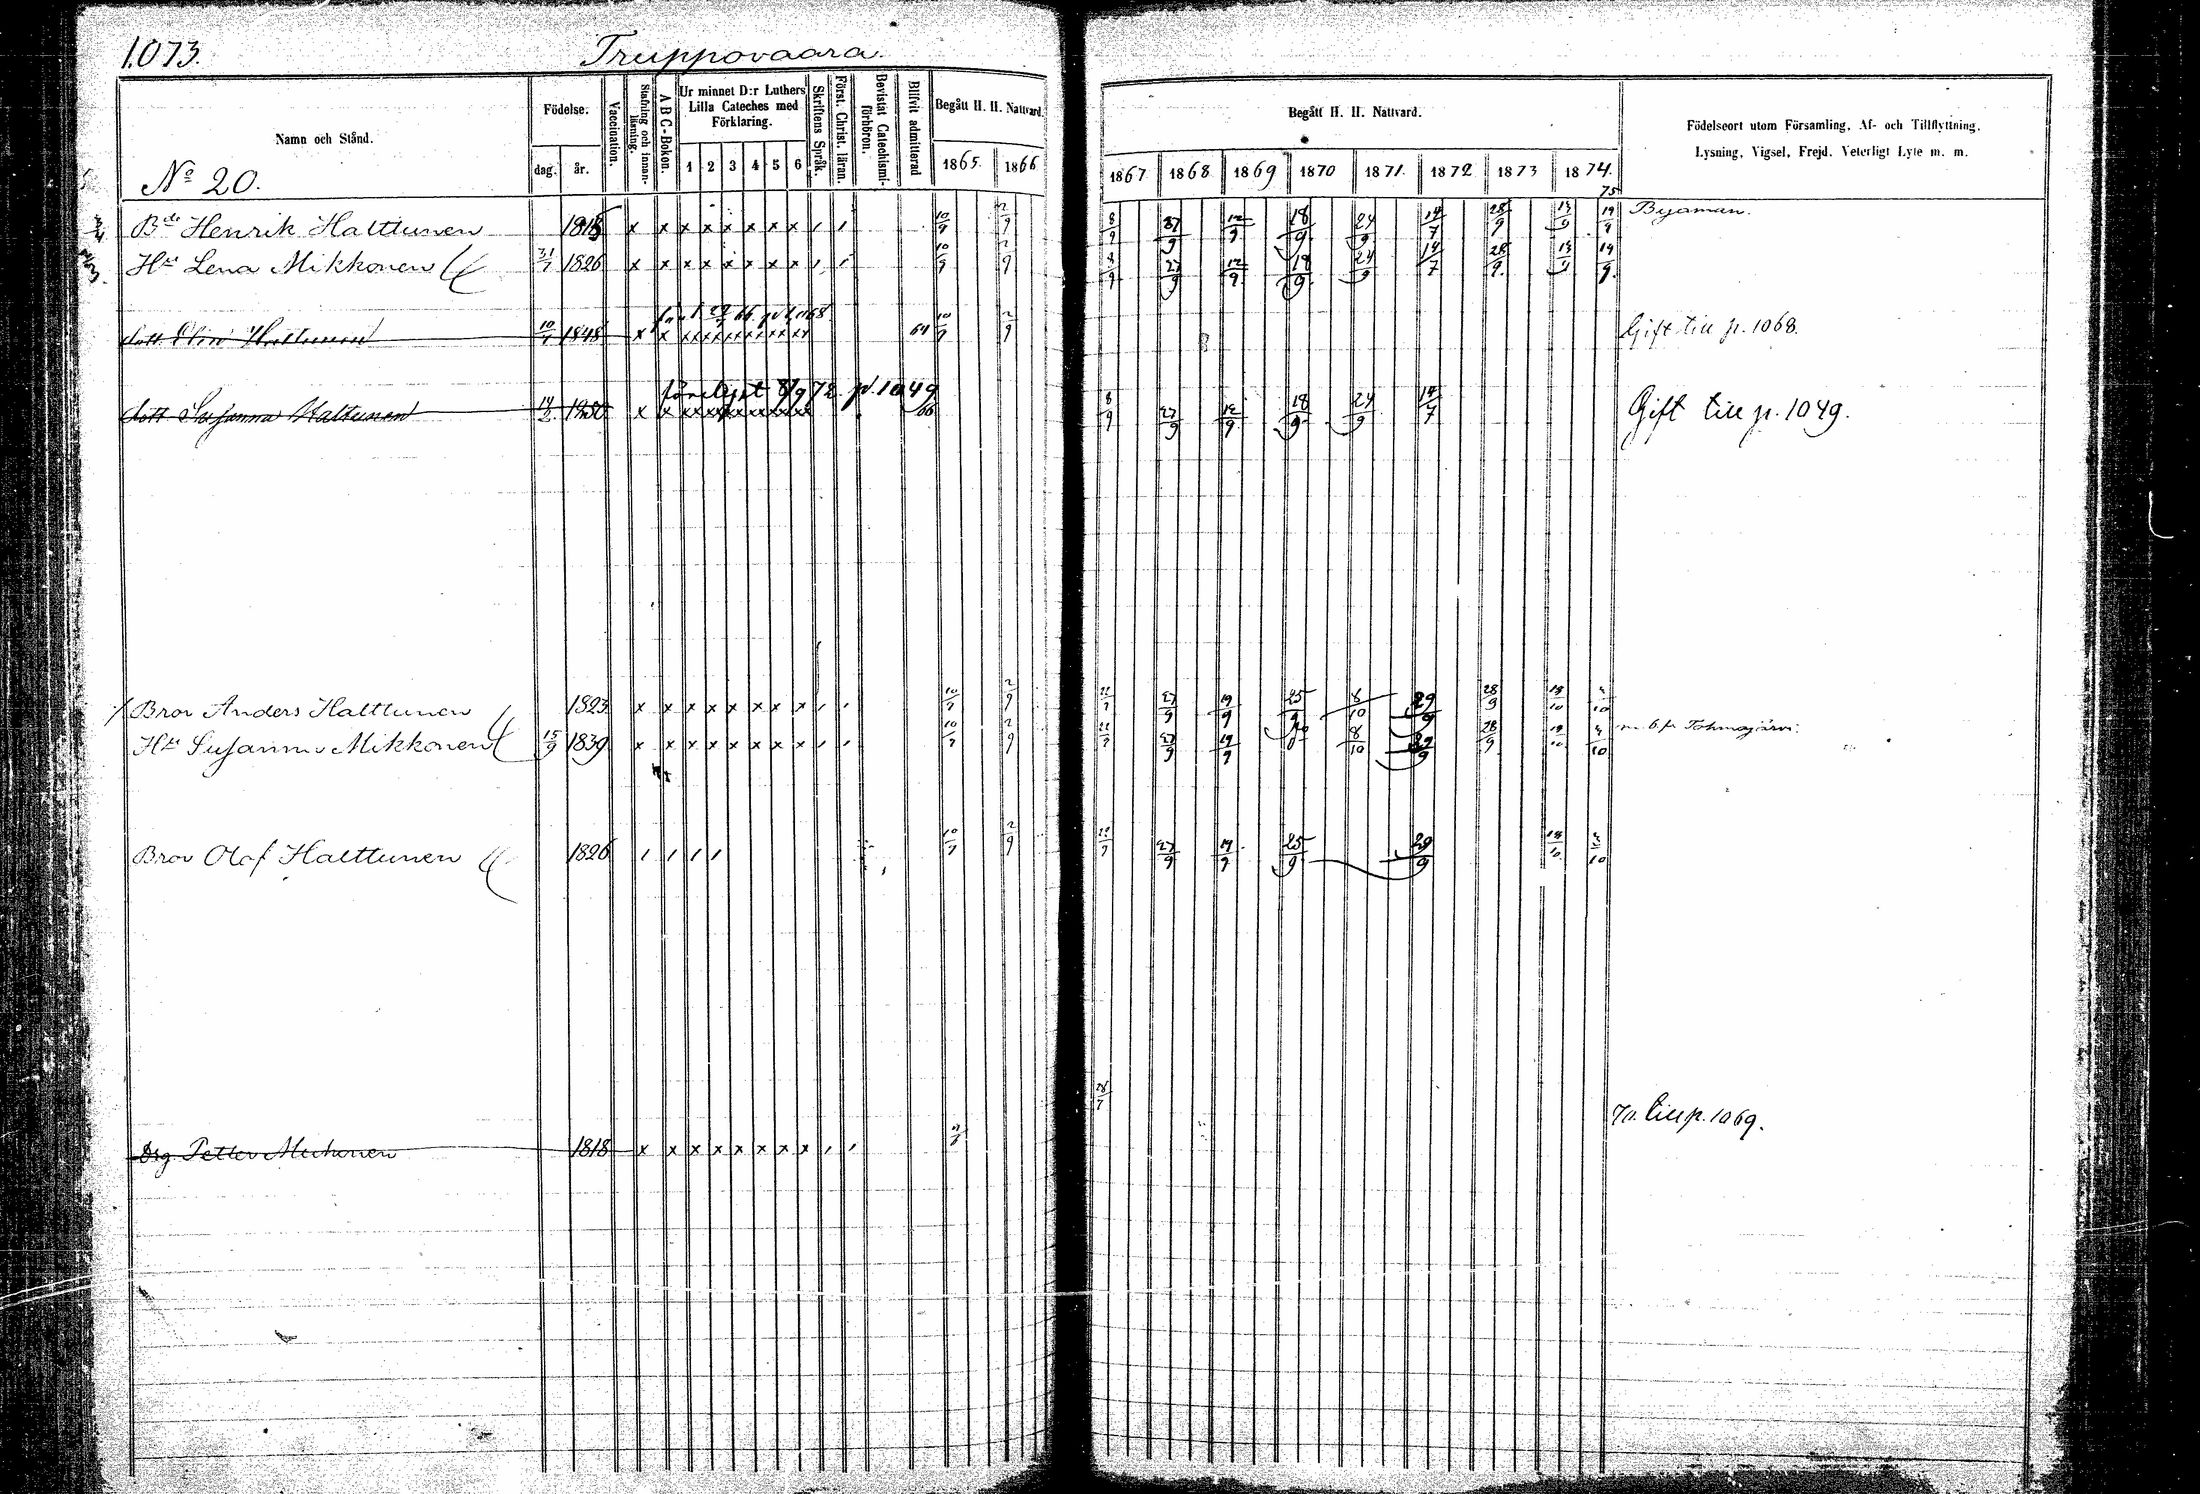 1073.
Truppovaara.
Namn och Stånd.
Födelse.
dag.
år.
Vaccination.
Stafning och innanläsning.
A B C-Bokon.
Ur minnet D:r Luthers Lilla Cateches med Förklaring.
1 2 3 4 5 6
Skriftens Språk.
Först. Christ. läran.
Bevistat Catechismi-förhören.
Blifvit admitterad
Begått H. H. Nattvard.
1865. 1866
Begått H. H. Nattvard.
1867 1868 1869 1870 1871. 1872 1873 1874. 75
Födelseort utom Församling, Af- och Tillflyttning,
Lysning, Vigsel, Frejd. Veterligt Lyte m. m.
No 20.
Bde Henrik Halttunen x x x x x x x x 10/9 2/9 8/9 27/9 12/9 18/9 24/9 14/7 28/9 19/9 Byaman.
Hu Lena Mikkonen 31/7 1826 x x x x x x x x 10/9 2/9 8/9 27/9 12/9 18/9 24/9 14/7 28/9 19/9
dott Elin Halttunen 10/7 1848 x x xx xx xx xx xx xx 64 10/9 2/9 Gift till p. 1068.
förelyst 8/9 72. pl. 1049
dott Susanna Halttunen 14/2 1850 x x xx xx xx xx xx xx 66 8/9 27/9 12/9 18/9 24/9 14/7 Gift till p. 1049.
Bror Anders Halttunen 1823 x x x x x x x x 10/9 2/9 22/9 27/9 19/9 25/9 8/10 29/9 28/9 18/10 4/10
Hu Susanna Mikkonen 15/9 1839 x x x x x x x x 10/9 2/9 22/9 27/9 19/9 8/10 29/9 28/9 18/10 4/10 m. b. fr Tohmajärvi.
Bror Olof Halttunen 1826 10/9 2/9 22/9 27/9 19/9 25/9 29/9 18/10 4/10
Drg Petter 1818 x x x x x x x x 28/7 70. till p. 1069.